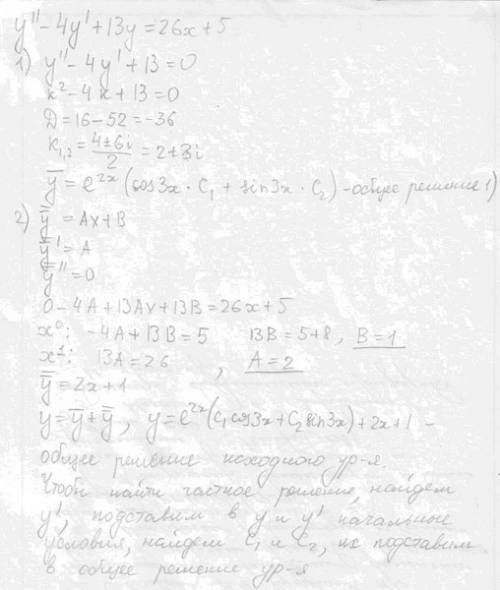 y'' - 4y' + 13y = 26x + 5
1) y'' - 4y' + 13 = 0
k² - 4k + 13 = 0
D = 16 - 52 = -36
K₁,₂ = (4 ± 6i)/2 = 2 ± 3i
y̅ = e²ˣ (cos3x · C₁ + sin3x · C₂) - общее решение 1)
2) y̿ = Ax + B
y̿' = A
y̿'' = 0
0 - 4A + 13Ax + 13B = 26x + 5
x⁰: -4A + 13B = 5 13B = 5 + 8, B = 1
x¹: 13A = 26 , A = 2
y̿ = 2x + 1
y = y̅ + y̿, y = e²ˣ (C₁cos3x + C₂sin3x) + 2x + 1 -
общее решение исходного ур-я.
Чтобы найти частное решение, найдем
y', подставим в y и y' начальные
условия, найдем C₁ и C₂, их подставим
в общее решение ур-я